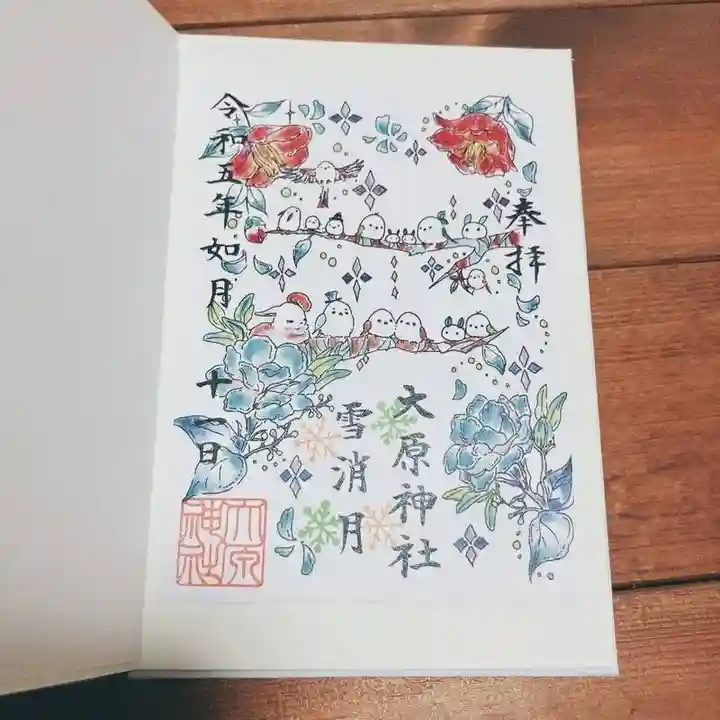 奉拝
大原神社
雪消月
令和五年如月十一日
大原
神社